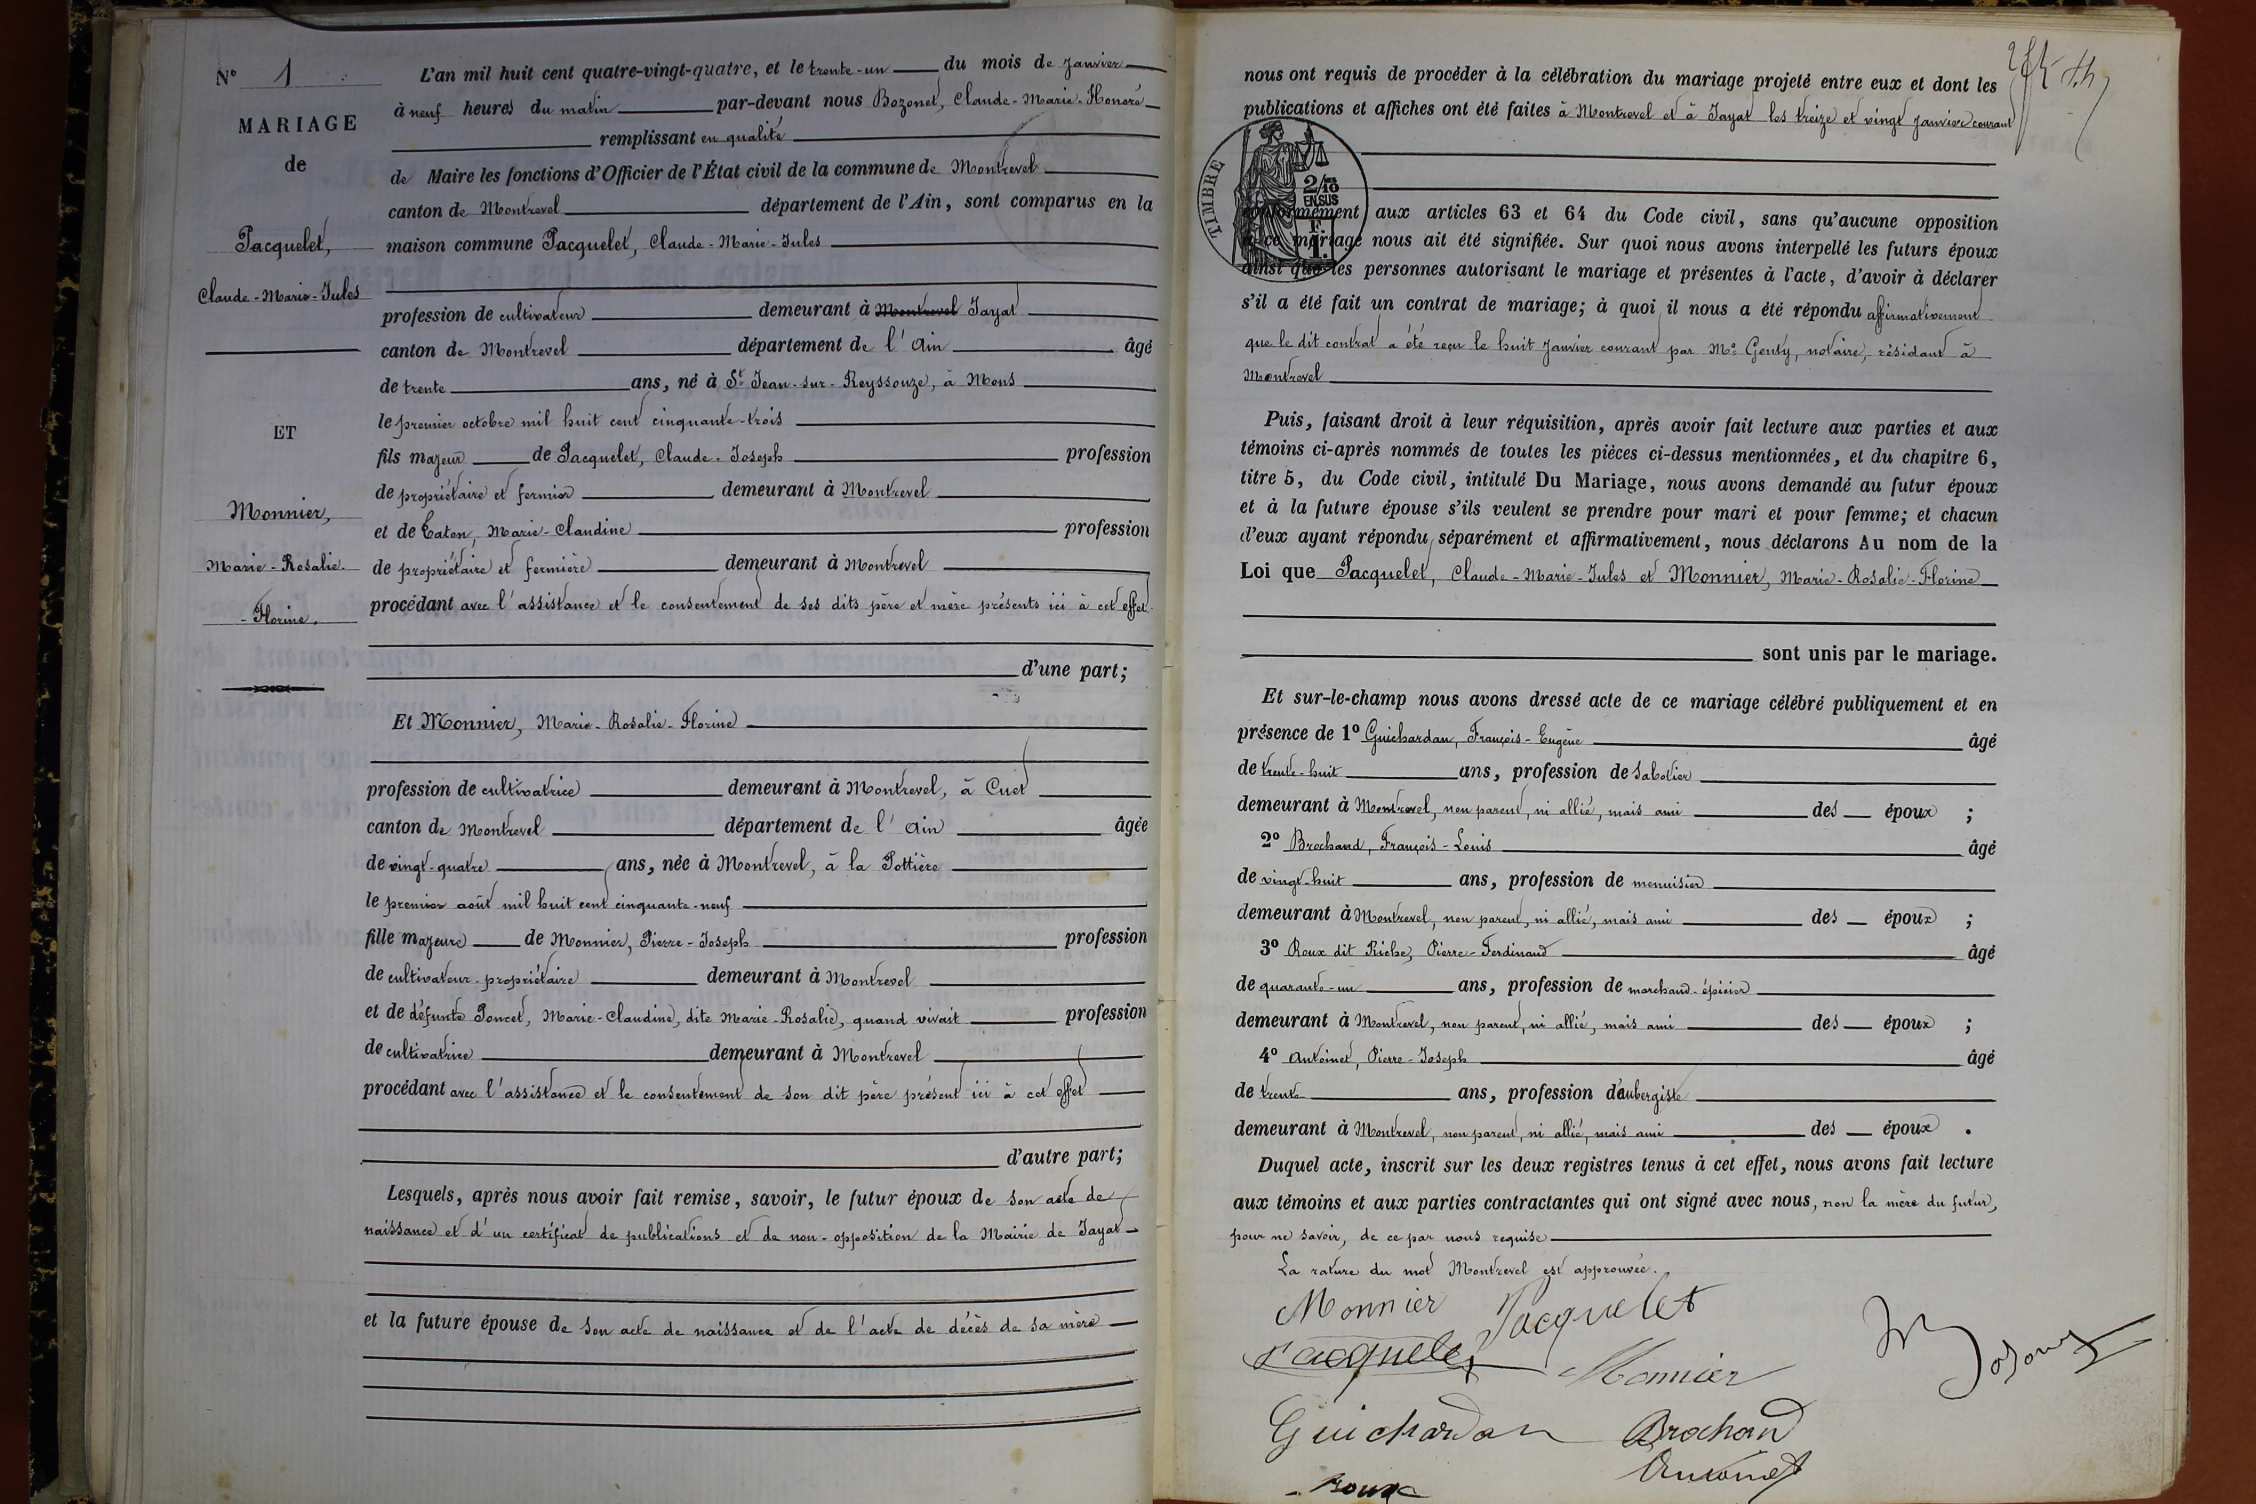 N° 1
MARIAGE
de
Pacquelet,
Claude-Marie-Jules
ET
Monnier,
Marie-Rosalie-
-Florine.
L'an mil huit cent quatre-vingt-quatre, et le trente-un du mois de Janvier
à neuf heures du matin par-devant nous Bozonet, Claude-Marie-Honoré
remplissant en qualité
de Maire les fonctions d'Officier de l'État civil de la commune de Montrevel
canton de Montrevel département de l'Ain, sont comparus en la
maison commune Pacquelet, Claude-Marie-Jules
profession de cultivateur demeurant à Montrevel Jayat
canton de Montrevel département de l'Ain âgé
de trente ans, né à St Jean-sur-Reyssouze, à Mons
le premier octobre mil huit cent cinquante-trois
fils majeur de Pacquelet, Claude-Joseph profession
de propriétaire et fermier demeurant à Montrevel
et de Caton, Marie-Claudine profession
de propriétaire et fermière demeurant à Montrevel
procédant avec l'assistance et le consentement de ses dits père et mère présents ici à cet effet
d'une part;
Et Monnier, Marie-Rosalie-Florine
profession de cultivatrice demeurant à Montrevel, à Cuet
canton de Montrevel département de l'Ain âgée
de vingt-quatre ans, née à Montrevel, à la Pottière
le premier août mil huit cent cinquante-neuf
fille majeure de Monnier, Pierre-Joseph profession
de cultivateur-propriétaire demeurant à Montrevel
et de défunte Poncet, Marie-Claudine, dite Marie-Rosalie, quand vivait profession
de cultivatrice demeurant à Montrevel
procédant avec l'assistance et le consentement de son dit père présent ici à cet effet
d'autre part;
Lesquels, après nous avoir fait remise, savoir, le futur époux de son acte de
naissance et d'un certificat de publications et de non-opposition de la Mairie de Jayat
et la future épouse de son acte de naissance et de l'acte de décès de sa mère
nous ont requis de procéder à la célébration du mariage projeté entre eux et dont les
publications et affiches ont été faites à Montrevel et à Jayat les treize et vingt Janvier courant
TIMBRE
2/10
EN SUS
F.
1.
conformément aux articles 63 et 64 du Code civil, sans qu'aucune opposition
à ce mariage nous ait été signifiée. Sur quoi nous avons interpellé les futurs époux
ainsi que les personnes autorisant le mariage et présentes à l'acte, d'avoir à déclarer
s'il a été fait un contrat de mariage; à quoi il nous a été répondu affirmativement
que le dit contrat a été reçu le huit Janvier courant par Me Genty, notaire, résidant à
Montrevel
Puis, faisant droit à leur réquisition, après avoir fait lecture aux parties et aux
témoins ci-après nommés de toutes les pièces ci-dessus mentionnées, et du chapitre 6,
titre 5, du Code civil, intitulé Du Mariage, nous avons demandé au futur époux
et à la future épouse s'ils veulent se prendre pour mari et pour femme; et chacun
d'eux ayant répondu séparément et affirmativement, nous déclarons Au nom de la
Loi que Pacquelet, Claude-Marie-Jules et Monnier, Marie-Rosalie-Florine
sont unis par le mariage.
Et sur-le-champ nous avons dressé acte de ce mariage célébré publiquement et en
présence de 1° Guichardan, François-Eugène âgé
de trente-huit ans, profession de sabotier
demeurant à Montrevel, non parent, ni allié, mais ami des époux ;
2° Brochand, François-Louis âgé
de vingt-huit ans, profession de menuisier
demeurant à Montrevel, non parent, ni allié, mais ami des époux ;
3° Roux dit Riche, Pierre-Ferdinand âgé
de quarante-un ans, profession de marchand-épicier
demeurant à Montrevel, non parent, ni allié, mais ami des époux ;
4° Antoinet, Pierre-Joseph âgé
de trente ans, profession d'aubergiste
demeurant à Montrevel, non parent, ni allié, mais ami des époux .
Duquel acte, inscrit sur les deux registres tenus à cet effet, nous avons fait lecture
aux témoins et aux parties contractantes qui ont signé avec nous, non la mère du futur,
pour ne savoir, de ce par nous requise
La rature du mot Montrevel est approuvée.
Monnier Pacquelet
Pacquelet Monnier
Guichardan Brochand
Antoinet
Roux